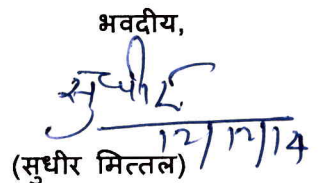 भवदीय,
सुधीर
12/12/14
(सुधीर मित्तल)